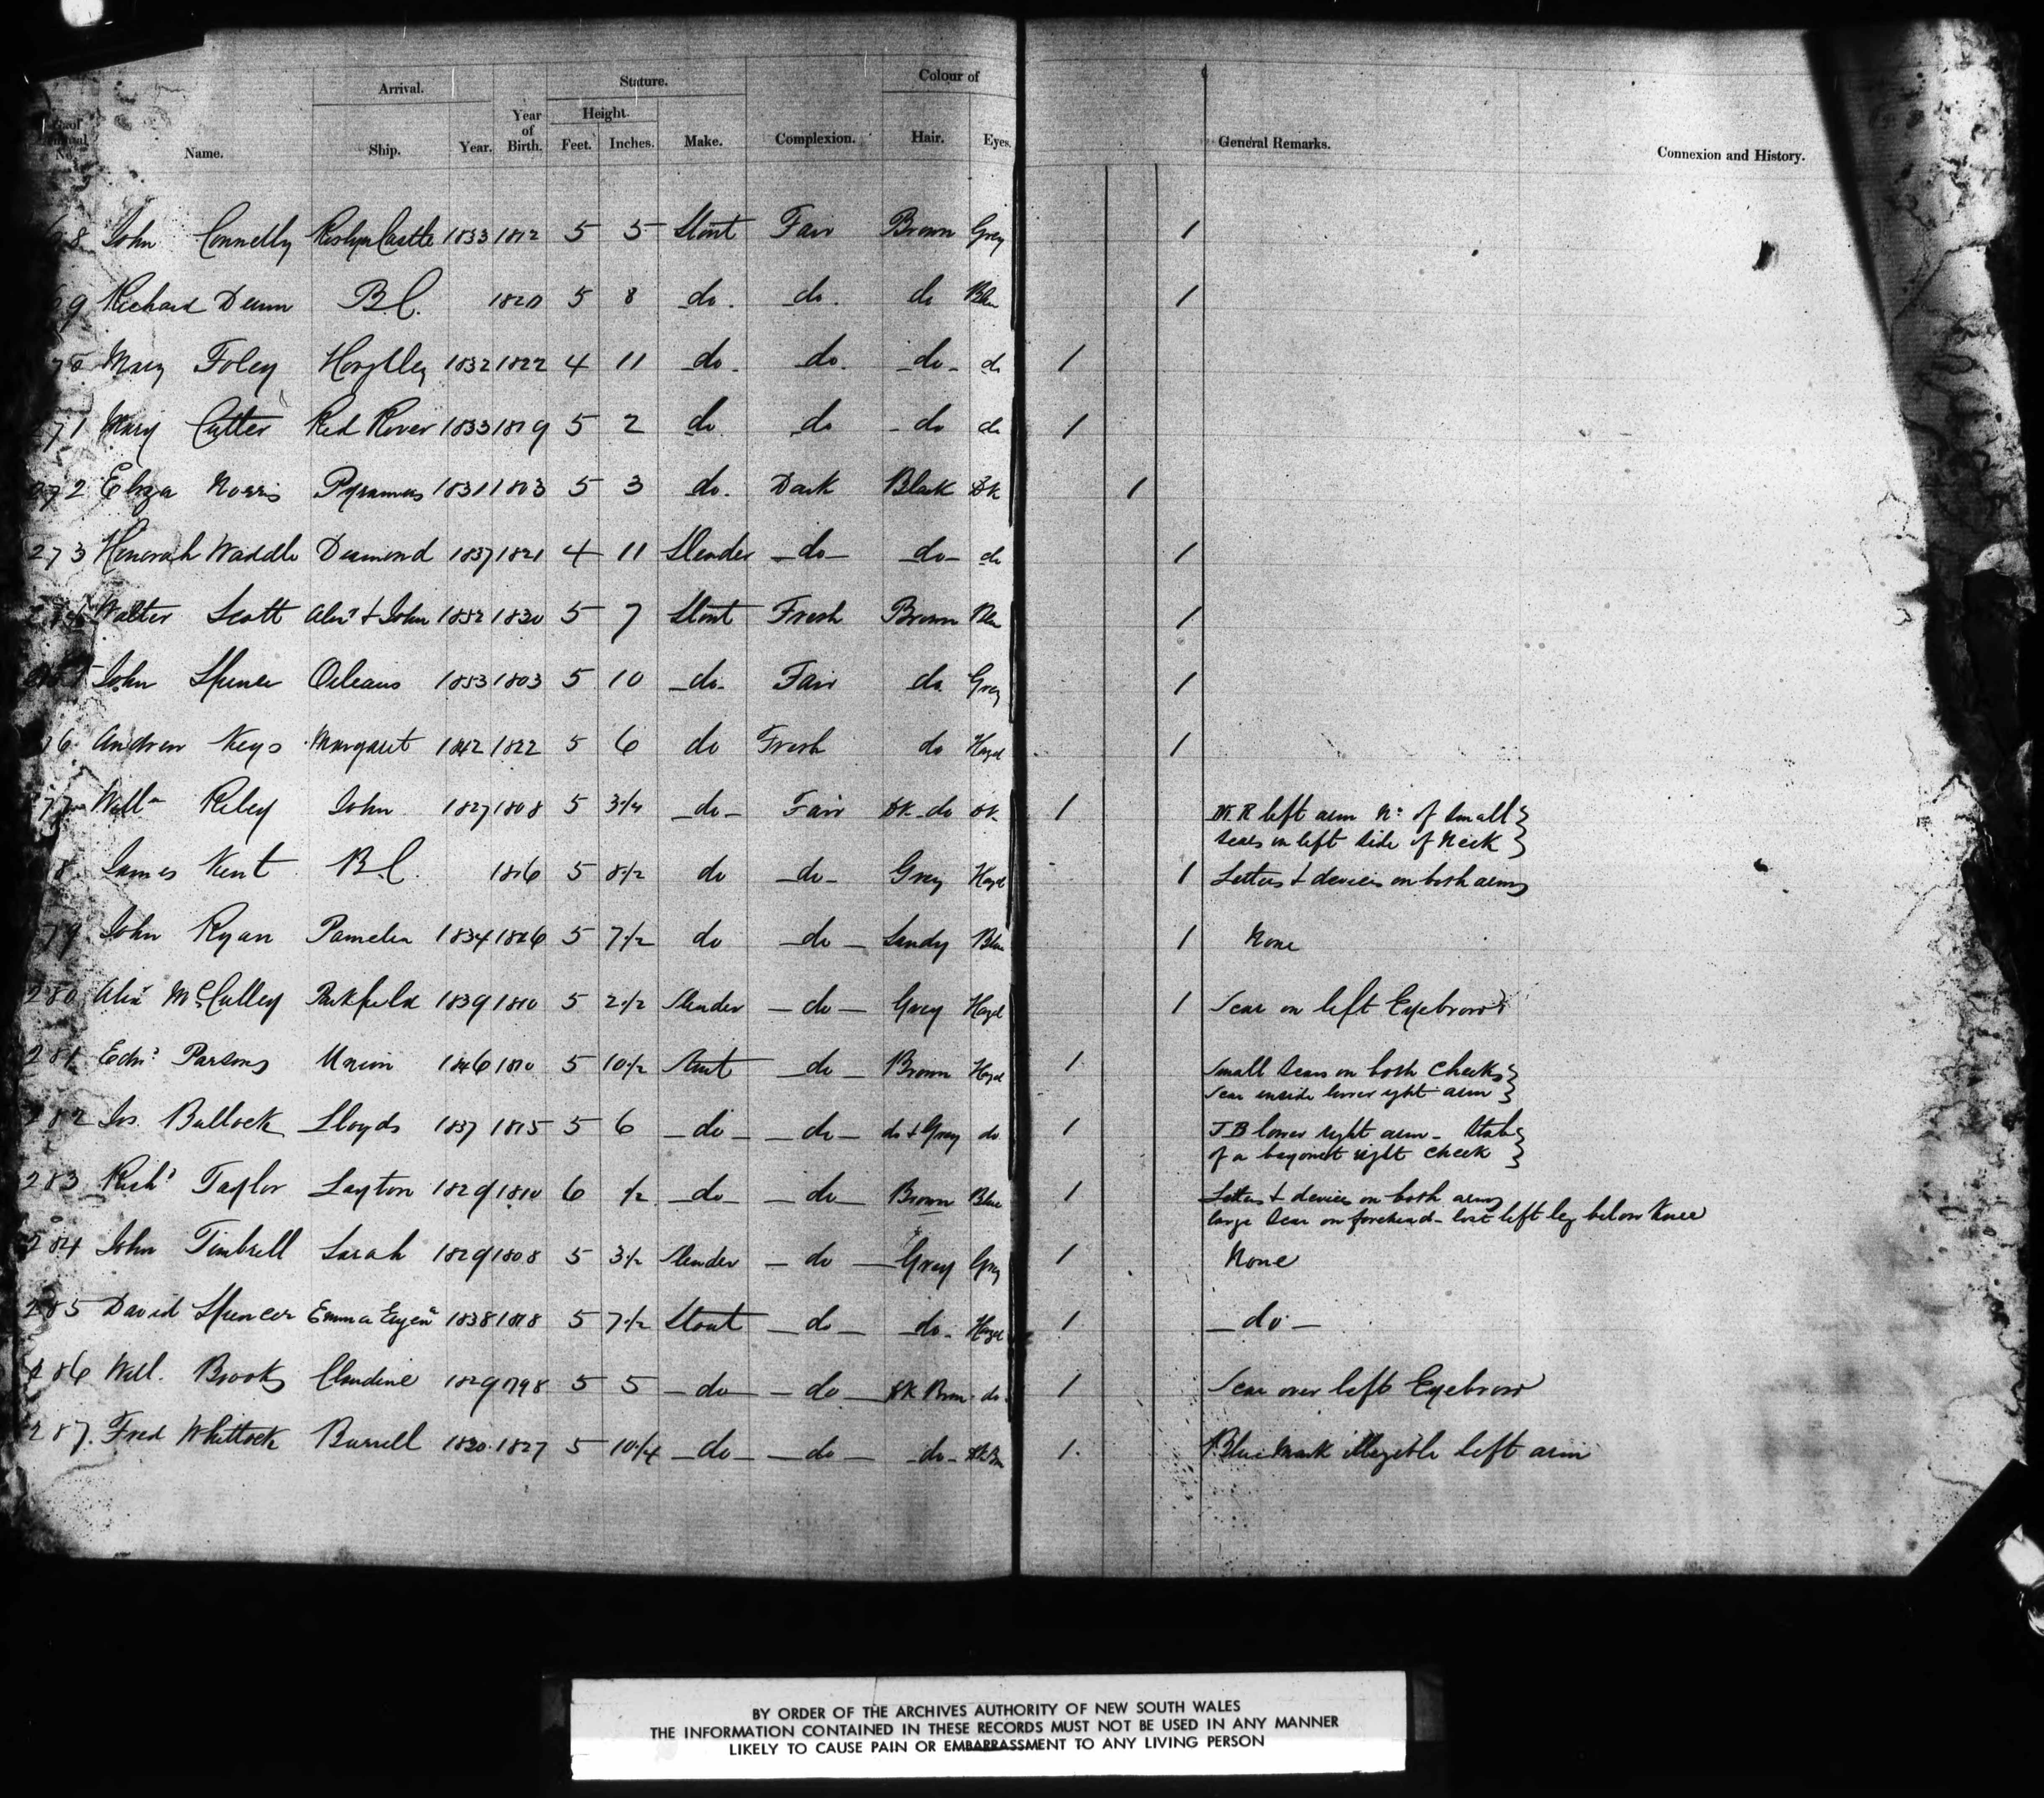 Arrival. Stature. Colour of
Year of Birth. Height.
No. Name. Ship. Year. Feet. Inches. Make. Complexion. Hair. Eyes. General Remarks. Connexion and History.
68 John Connelly Roslyn Castle 1833 1812 5 5 Stout Fair Brown Grey 1
69 Richard Dunn B.C. 1820 5 8 do. do. do Blue 1
70 Mary Foley 1832 1822 4 11 do. do. do do 1
271 Mary Cutter Red Rover 1833 1819 5 2 do do do do 1
272 Eliza Norris Pyramus 1831 1803 5 3 do. Dark Black Dk 1
273 Honorah Waddle Diamond 1837 1821 4 11 Slender do do do 1
Walter Scott Alexr & John 1852 1830 5 7 Stout Fresh Brown Blue 1
John Spence Orleans 1853 1803 5 10 do. Fair do. Grey 1
76 Andrew Keys Margaret 1842 1822 5 6 do Fresh do Hazel 1
77 Willm Riley John 1827 1808 5 3 1/4 do Fair Dk do Dk 1 W.R left arm No. of small
scars on left side of Neck
8 James Kent B.C. 1816 5 8 1/2 do do Grey Hazel 1 Letters & devices on both arms
79 John Ryan Pamelia 1834 5 7 1/2 do do Sandy Blue 1 None
280 Alexr McCulley Parkfield 1839 1810 5 2 1/2 Slender do Grey Hazel 1 Scar on left Eyebrow
281 Edwd Parsons Union 1846 1810 5 10 1/2 Stout do Brown Hazel 1 Small Scars on both Cheeks
Scar inside lower right arm
282 Jos. Bullock Lloyds 1837 1815 5 6 do do do & Grey do 1 J B lower right arm - Stab
of a bayonet right cheek
283 Richd Taylor Layton 1829 1810 6 1/2 do do Brown Blue 1 Letters & device on both arms
large Scar on forehead - lost left leg below Knee
284 John Timbrell Sarah 1829 1808 5 3 1/2 Slender do Grey Grey 1 None
285 David Spencer Emma Eugena 1838 1818 5 7 1/2 Stout do do Hazel 1 do
286 Will. Brooks Claudine 1829 1798 5 5 do do Dk Brn do 1 Scar over left Eyebrow
287. Fred Whittock Burrell 1830 1827 5 10 1/4 do do do 1. Blue Mark illegible left arm
BY ORDER OF THE ARCHIVES AUTHORITY OF NEW SOUTH WALES
THE INFORMATION CONTAINED IN THESE RECORDS MUST NOT BE USED IN ANY MANNER
LIKELY TO CAUSE PAIN OR EMBARRASSMENT TO ANY LIVING PERSON